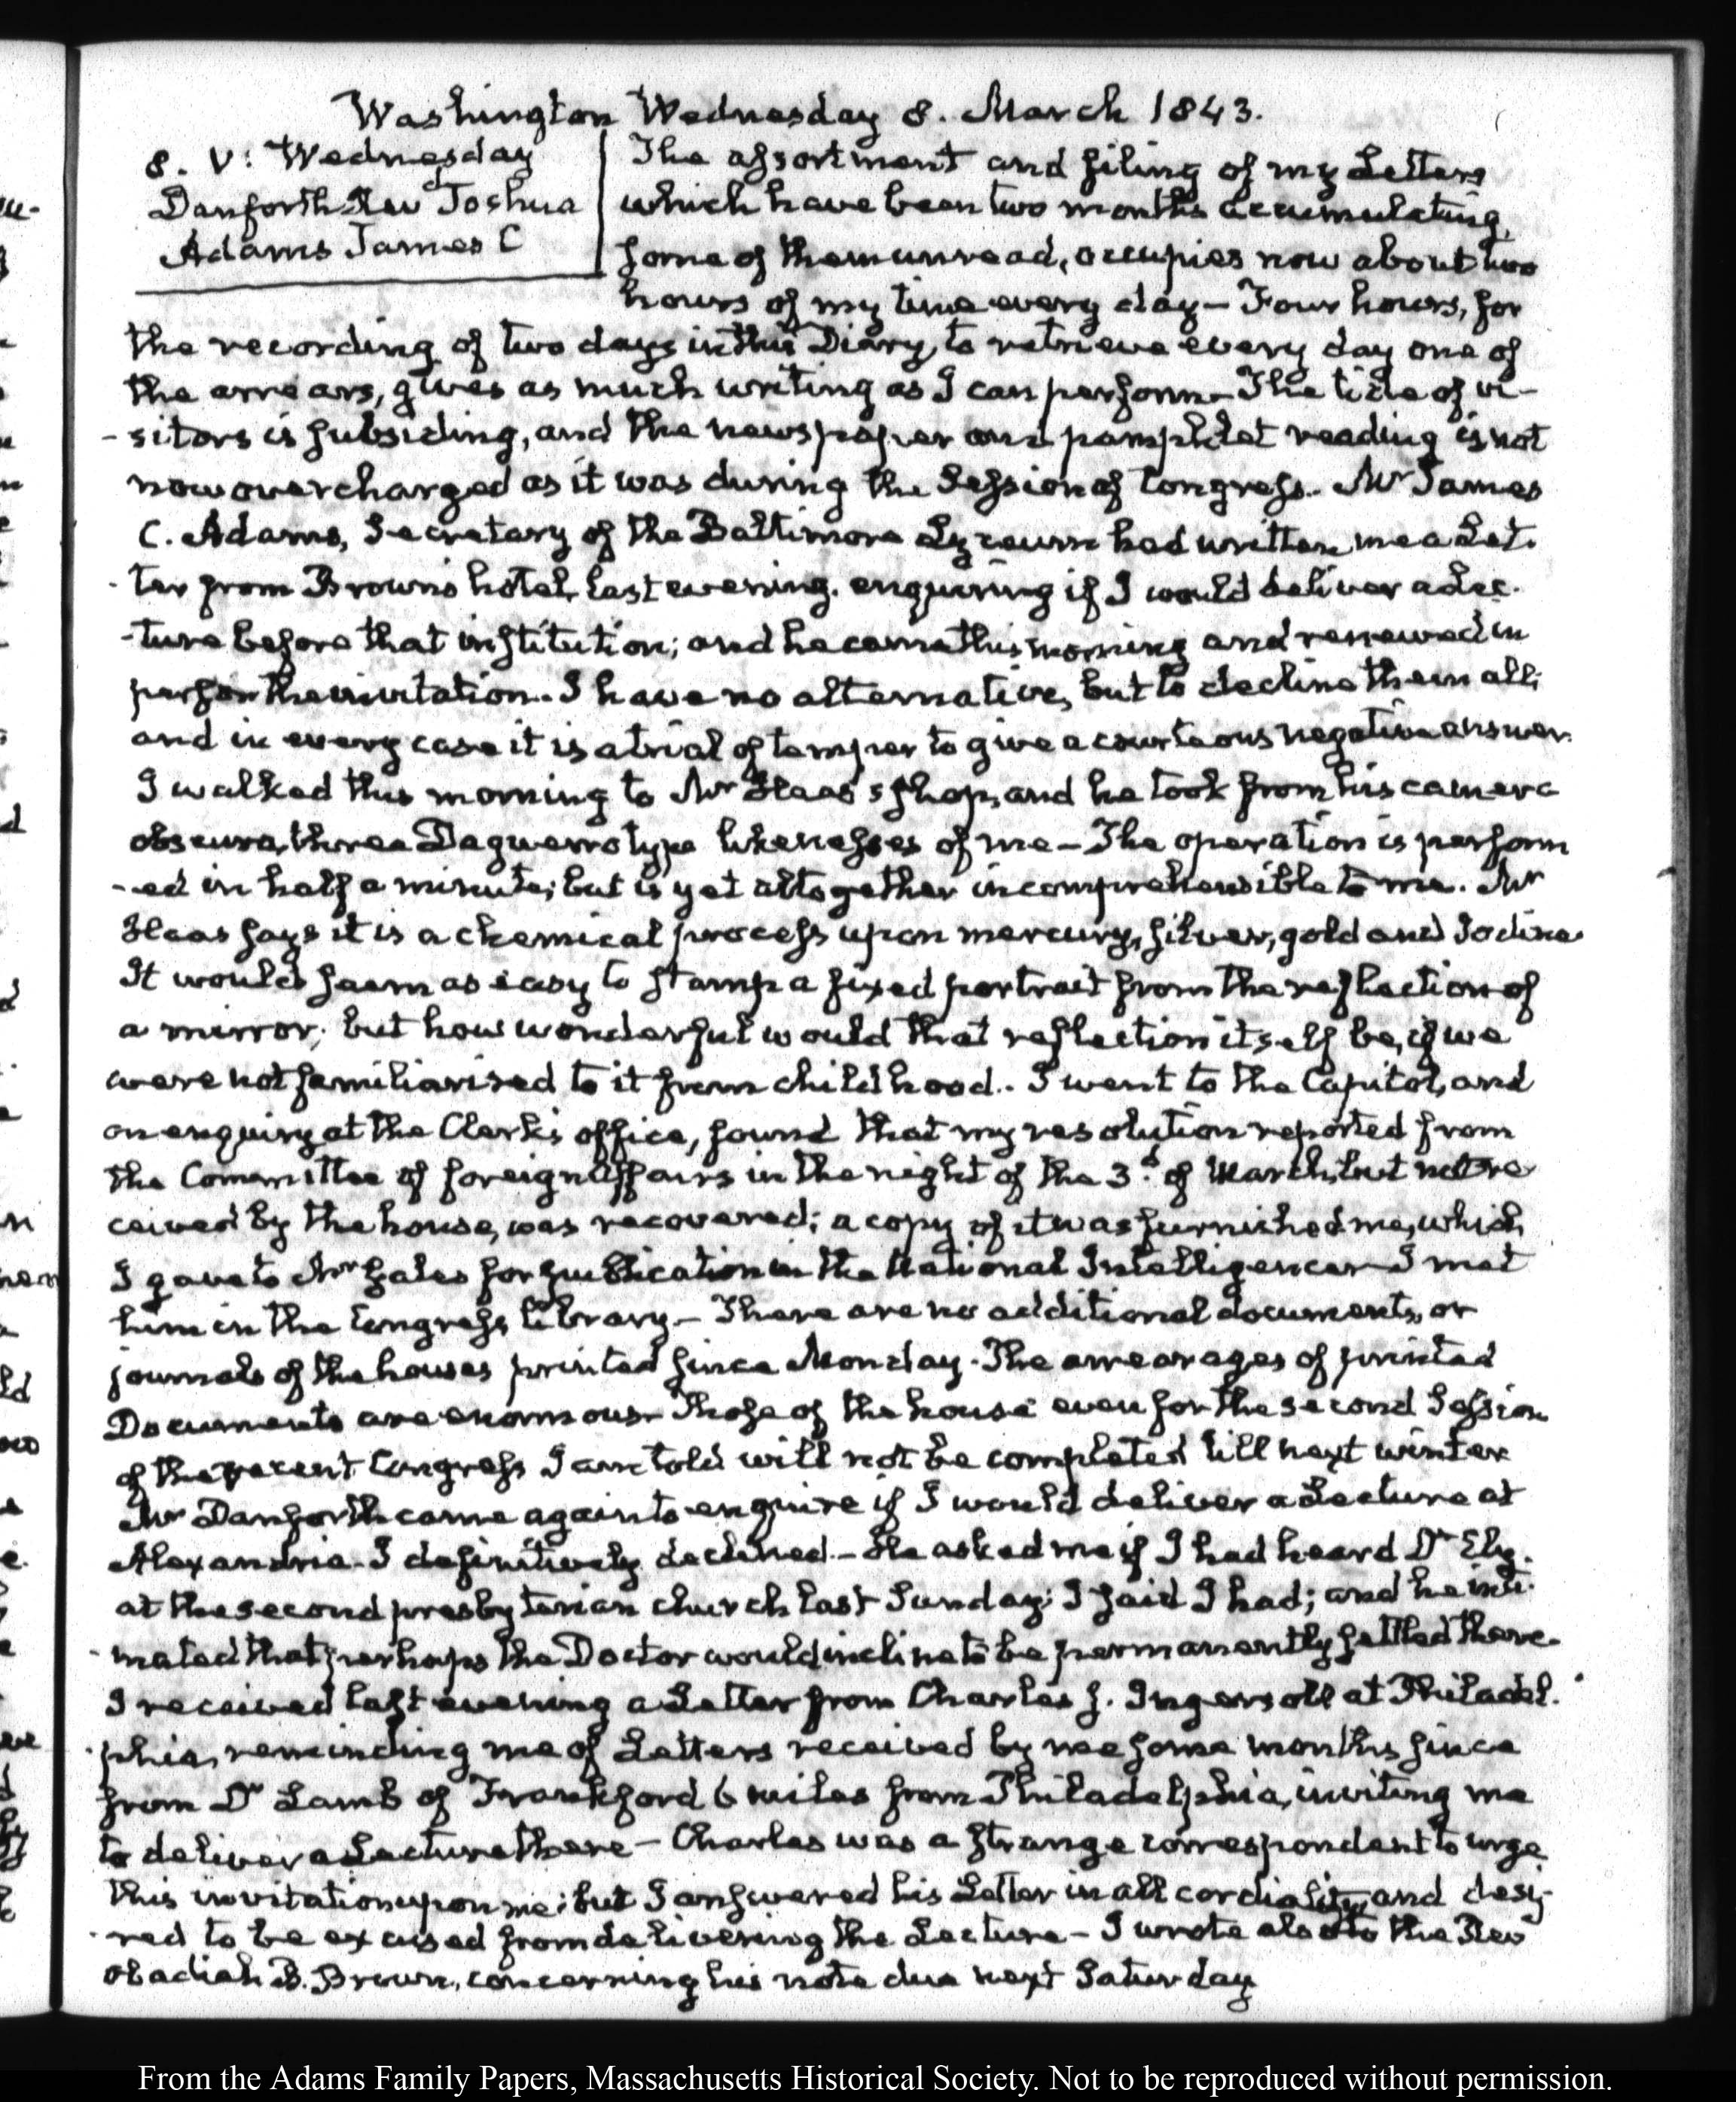 Washington Wednesday 8. March 1843.
8. V: Wednesday
Danforth Revd Joshua
Adams James C
The assortment and filing of my Letters
which have been two months accumulating,
some of them unread, occupies now about two
hours of my time every day — Four hours, for
the recording of two days in this Diary, to retrieve every day one of
the arrears, gives as much writing as I can perform — The tide of vi-
-sitors is subsiding, and the newspaper and pamphlet reading is not
now overcharged as it was during the Session of Congress. Mr James
C. Adams, Secretary of the Baltimore Lyceum had written me a Let-
-ter from Brown's hotel, last evening, enquiring if I would deliver a Lec-
-ture before that institution; and he came this morning and renewed in
person the invitation. I have no alternative, but to decline them all;
and in every case it is a trial of temper to give a courteous negative answer.
I walked this morning to Mr Haas's shop, and he took from his camera
obscura, three Daguerrotype likenesses of me — The operation is perform
-ed in half a minute; but is yet altogether incomprehensible to me. Mr
Haas says it is a chemical process upon mercury, silver, gold and Iodine
It would seem as easy to stamp a fixed portrait from the reflection of
a mirror; but how wonderful would that reflection itself be, if we
were not familiarised to it from childhood. I went to the Capitol, and
on enquiry at the Clerk's office, found that my resolution reported from
the Committee of foreign Affairs in the night of the 3d of March, but not re
ceived by the house, was recovered; a copy of it was furnished me, which
I gave to Mr Gales for publication in the National Intelligencer — I met
him in the Congress library — There are no additional documents, or
journals of the houses printed since Monday. The arrearages of printed
Documents are enormous — Those of the house even for the second Session
of the recent Congress I am told will not be completed till next winter
Mr Danforth came again to enquire if I would deliver a Lecture at
Alexandria — I definitively declined — He asked me if I had heard Dr Ely.
at the second presbyterian church last Sunday; I said I had; and he inti-
-mated that perhaps the Doctor would incline to be permanently settled there.
I received last evening a Letter from Charles J. Ingersoll at Philadel-
-phia, reminding me of Letters received by me some months since
from Dr Lamb of Frankford 6 miles from Philadelphia, inviting me
to deliver a Lecture there — Charles was a strange correspondent to urge
this invitation upon me; but I answered his Letter in all cordiality, and desi-
-red to be excused from delivering the Lecture — I wrote also to the Rev
Obadiah B. Brown, concerning his note due next Saturday
From the Adams Family Papers, Massachusetts Historical Society. Not to be reproduced without permission.